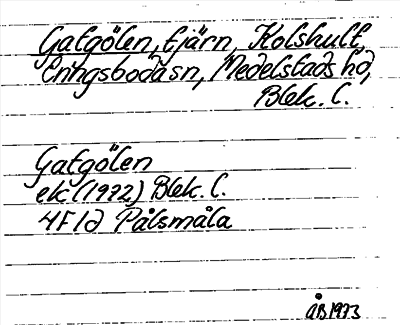 Gatgölen, tjärn, Kolshult,
Eringsbodasn, Medelstads hd,
Blek. l.
Gatgölen
ek (1972) Blek. l.
4F1d Pålsmåla
ÅB1973